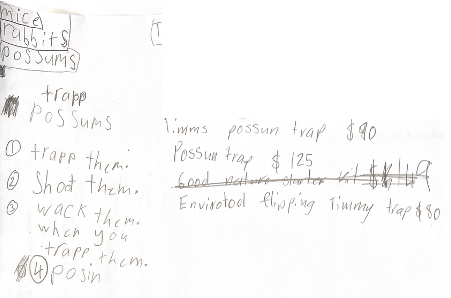 mice
rabbits
possums
trapp
possums
① trapp them.
② Shot them.
③ wack them.
when you
trapp them.
④ posin
Timms possun trap $90
Possun trap $ 125
Good nature starter kit
Envirotool flipping Timmy trap $80